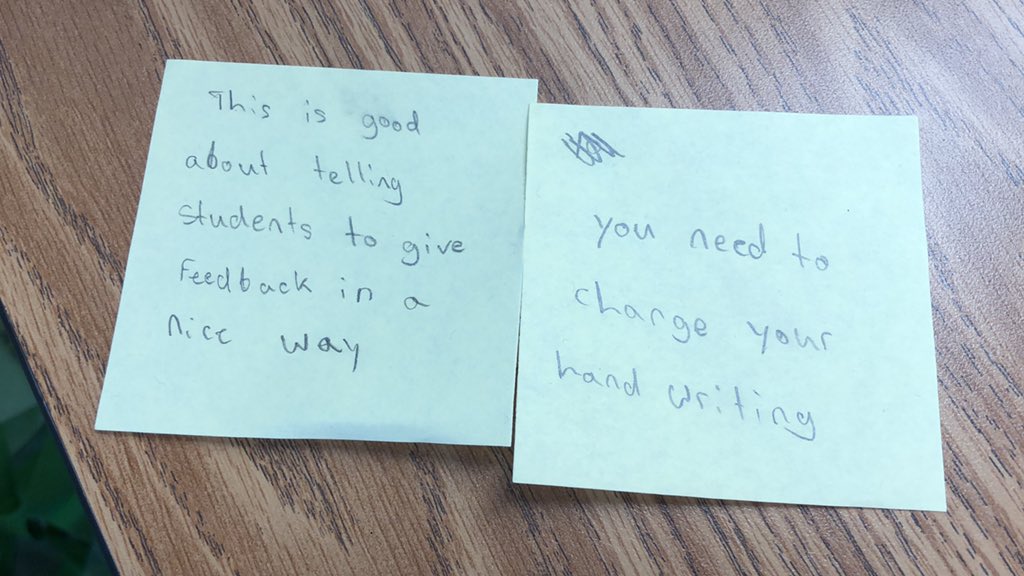 This is good
about telling
students to give
Feedback in a
nice way
you need to
change your
hand writing